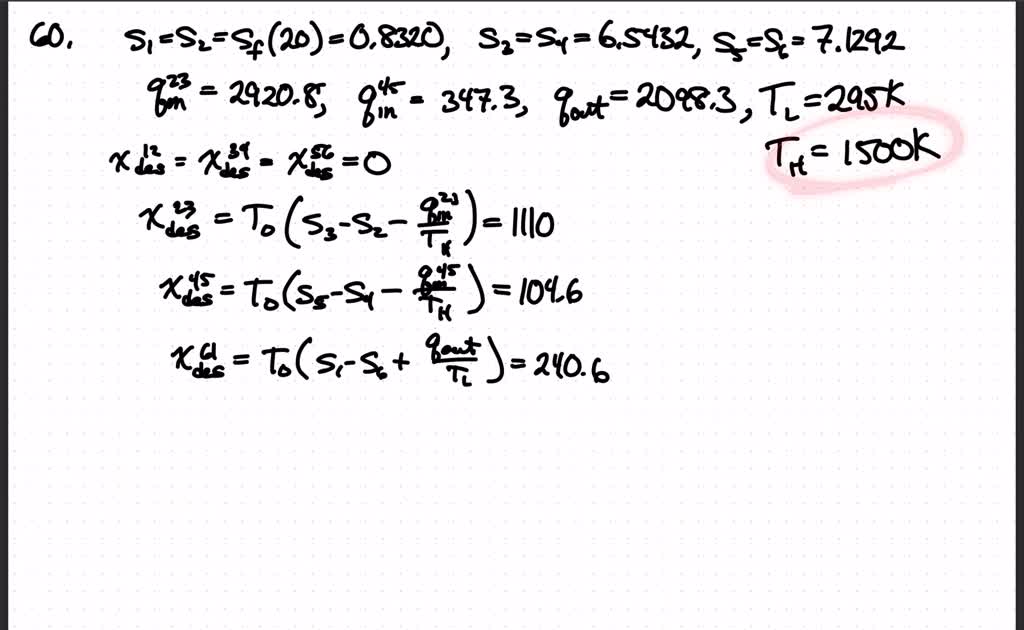 60. s₁=s₂=s_f(20)=0.8320, s₂=s₄=6.5432, s₅=s₆=7.1292
q_in^23 = 2920.8, q_in^45 = 347.3, q_out=2098.3, T_L=295K
T_H=1500K
x_des^12 = x_des^34 = x_des^56 = 0
x_des^23 = T₀(s₃-s₂-q_in^23/T_H)=1110
x_des^45 = T₀(s₅-s₄-q_in^45/T_H)=104.6
x_des^61 = T₀(s₁-s₆+q_out/T_L)=240.6